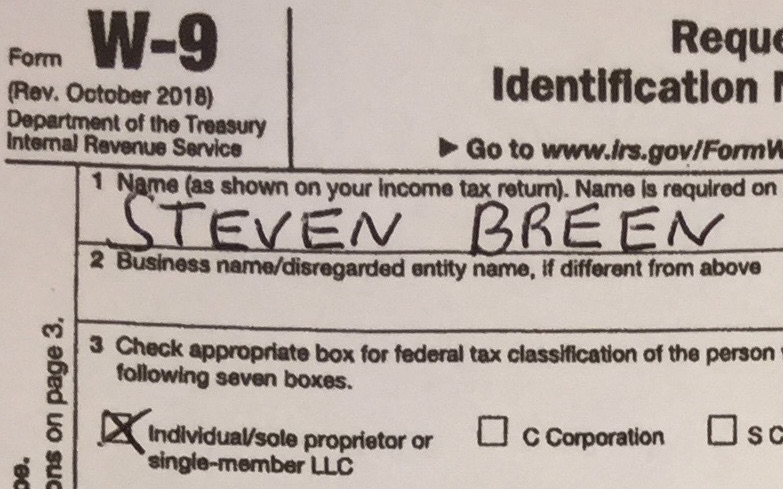 Form W-9
(Rev. October 2018)
Department of the Treasury
Internal Revenue Service
Identification
► Go to www.irs.gov/FormW
1 Name (as shown on your income tax return). Name is required on
STEVEN BREEN
2 Business name/disregarded entity name, if different from above
3 Check appropriate box for federal tax classification of the person
following seven boxes.
☒ Individual/sole proprietor or
single-member LLC
☐ C Corporation
☐ S
ons on page 3.